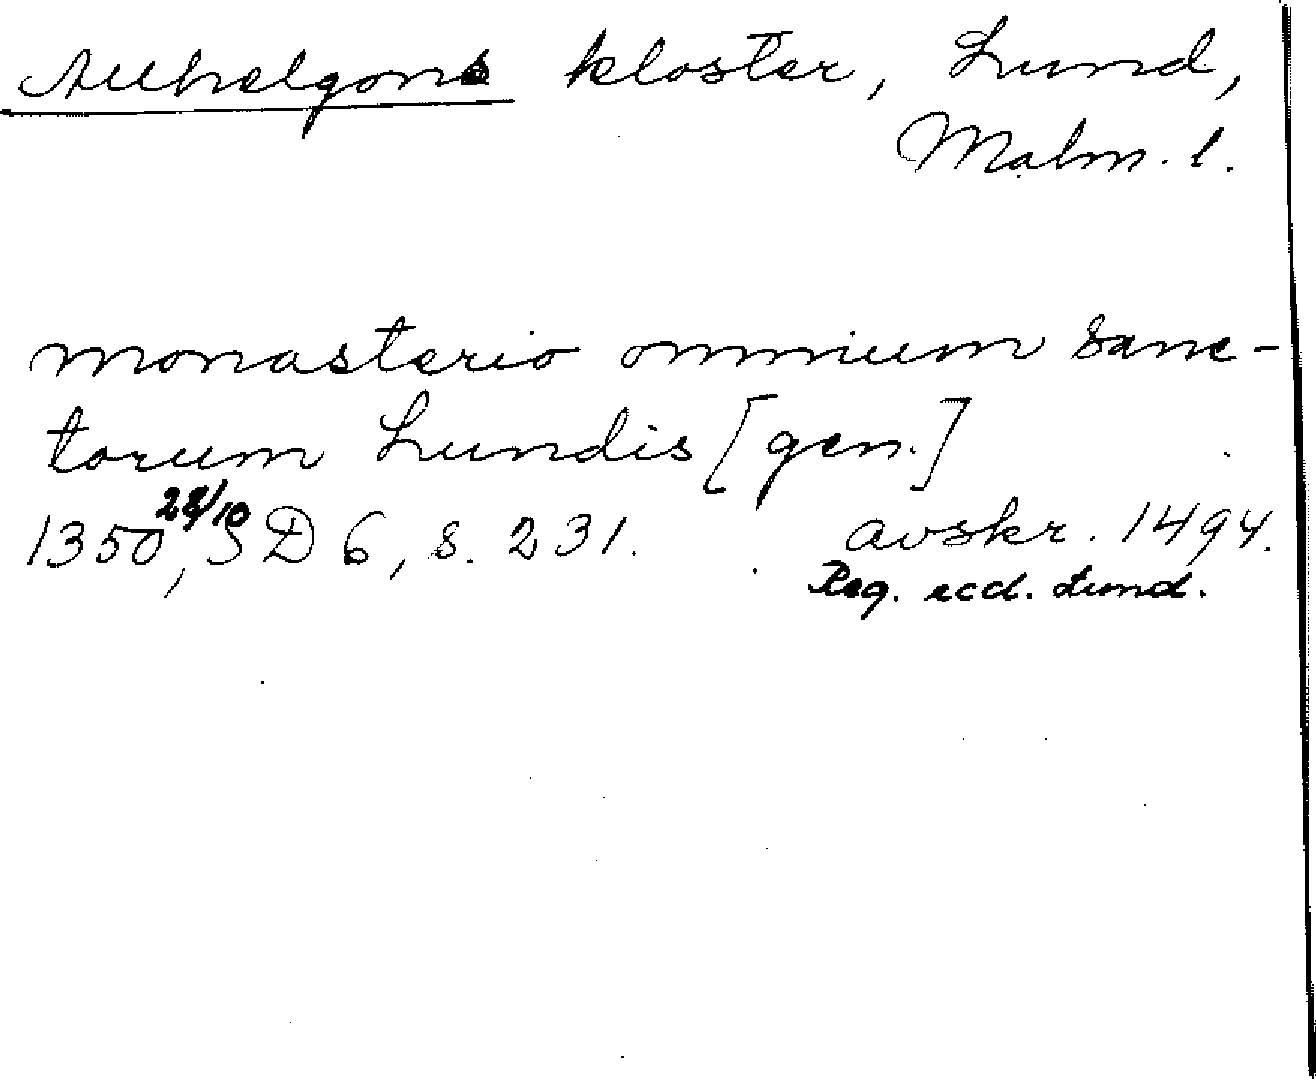 Allhelgons kloster, Lund,
Malm. l.
monasterio omnium sanc-
torum Lundis [gen.]
1350 28/10, SD 6, s. 231. avskr. 1494.
Reg. eccl. Lund.